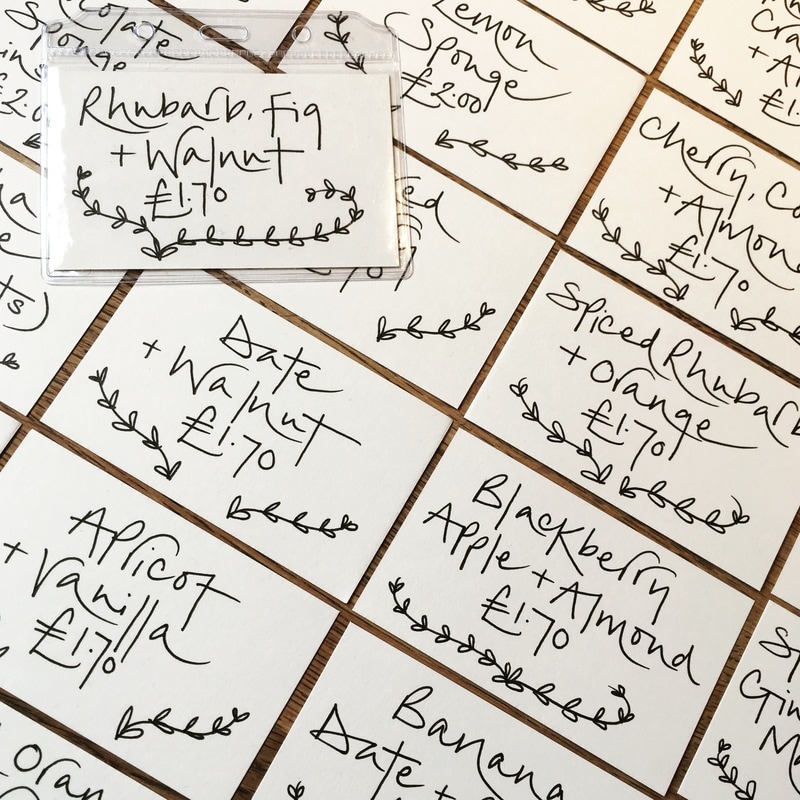 Sponge
£2.00
Rhubarb, Fig
+ Walnut
£1.70
Lemon
Sponge
£2.00
Cherry,
+ Almond
£1.70
Date
+ Walnut
£1.70
Spiced Rhubarb
+ Orange
£1.70
Apricot
+ Vanilla
£1.70
Blackberry
Apple + Almond
£1.70
Banana
Date +